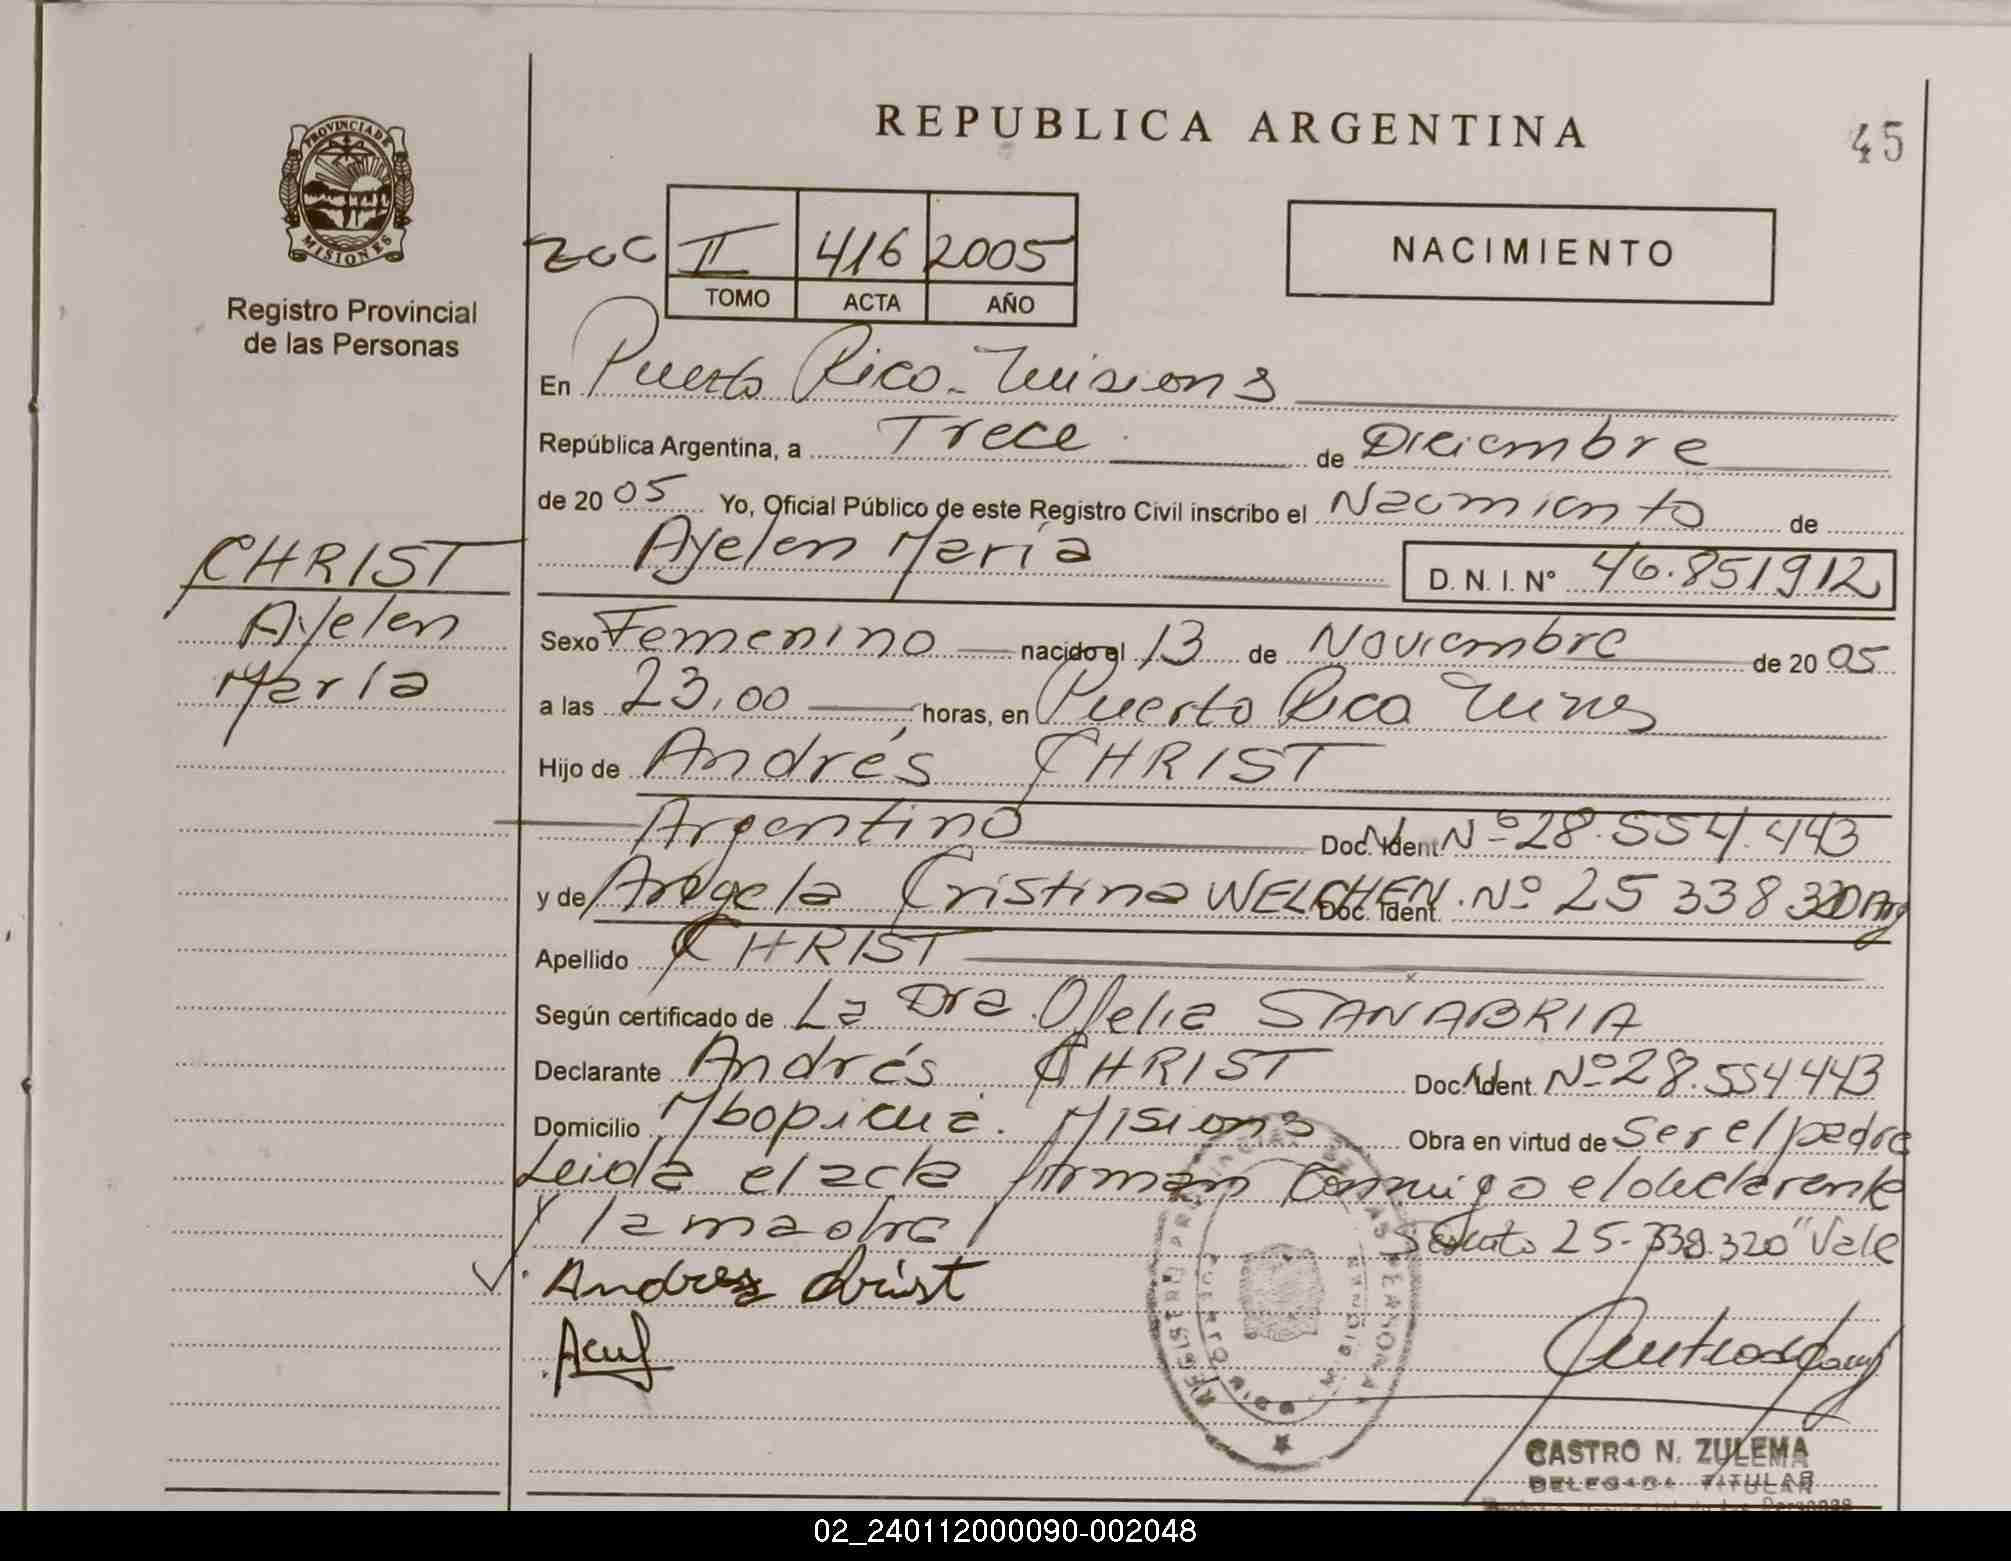 REPUBLICA ARGENTINA
45
PROVINCIA DE
MISIONES
Registro Provincial
de las Personas
II 416 2005
TOMO ACTA AÑO
NACIMIENTO
En Puerto Rico - Misiones
República Argentina, a Trece de Diciembre
de 20 05 Yo, Oficial Público de este Registro Civil inscribo el Nacimiento de
Ayelen María D. N. I. Nº 46.851912
CHRIST
Ayelen
María
Sexo Femenino nacido el 13 de Noviembre de 20 05
a las 23,00 horas, en Puerto Rico Mnes
Hijo de Andrés CHRIST
Argentino Doc. Ident. Nº 28.554.443
y de Angela Cristina WELCHEN Doc. Ident. Nº 25 338 320 Arg
Apellido CHRIST
Según certificado de La Dra Ofelia SANABRIA
Declarante Andrés CHRIST Doc. Ident. Nº 28.554443
Domicilio Mbopicuá. Misiones Obra en virtud de Ser el padre
Leida el acta firman conmigo el declarante
y la madre 25-338.320 "Vale
Andres Christ
CASTRO N. ZULEMA
DELEGADA TITULAR
02_240112000090-002048